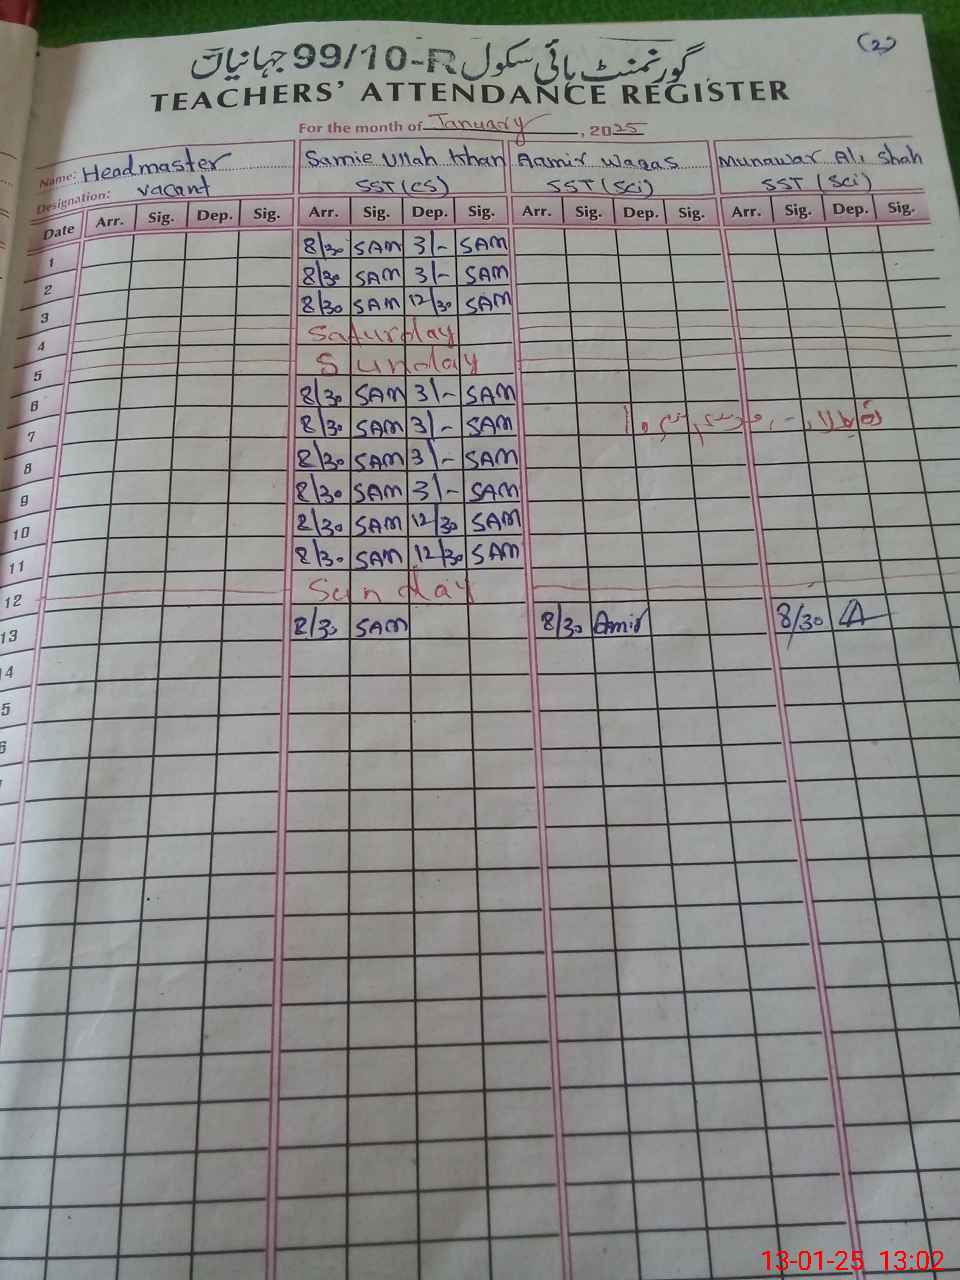 (2)
گورنمنٹ ہائی سکول 99/10-R جہانیاں
TEACHERS' ATTENDANCE REGISTER
For the month of January, 2025
Name: Headmaster Samie Ullah Khan Aamir Waqas Munawar Ali Shah
Designation: vacant SST (CS) SST (Sci) SST (Sci)
Date Arr. Sig. Dep. Sig. Arr. Sig. Dep. Sig. Arr. Sig. Dep. Sig. Arr. Sig. Dep. Sig.
1 8/30 SAM 3/- SAM
2 8/30 SAM 3/- SAM
3 8/30 SAM 12/30 SAM
4 Saturday
5 Sunday
6 8/30 SAM 3/- SAM
7 8/30 SAM 3/- SAM
8 8/30 SAM 3/- SAM
9 8/30 SAM 3/- SAM
10 8/30 SAM 12/30 SAM
11 8/30 SAM 12/30 SAM
12 Sunday
13 8/30 SAM 8/30 Amir 8/30
14
5
6
13-01-25 13:02